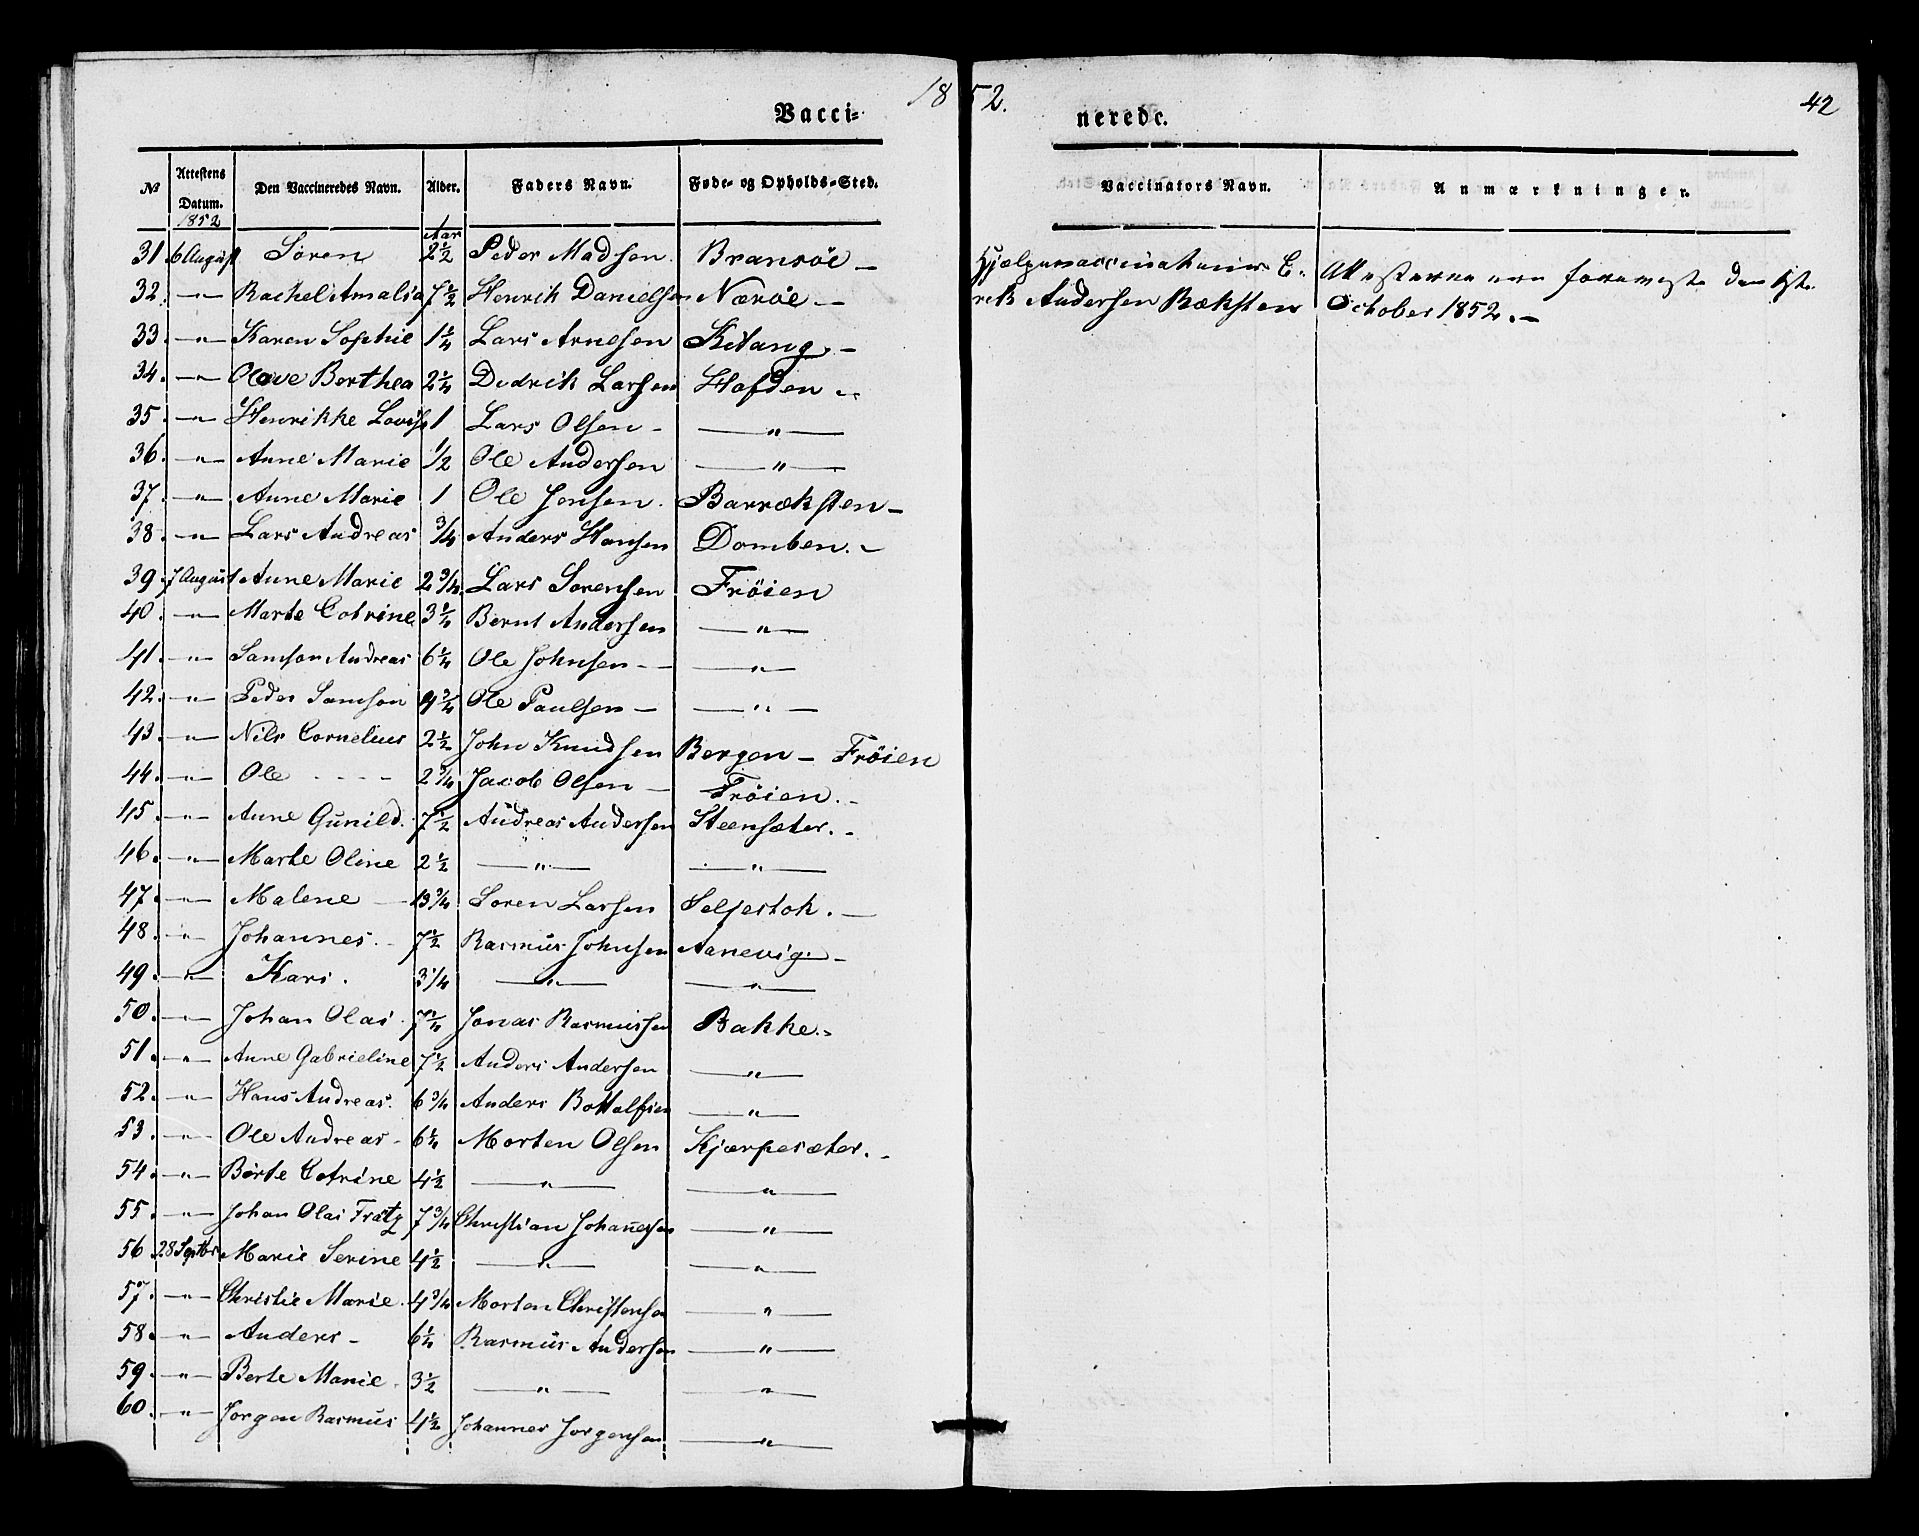 1852.
42
Vacci= nerede.
№ | Attestens Datum. | Den Vaccineredes Navn. | Alder. | Faders Navn. | Føde- og Opholds-Sted. | Vaccinators Navn. | Anmærkninger.
1852 | Aar
31 | 6 August | Søren | 2½ | Peder Madsen. | Bransöe – | Hjælpevaccinateur E-
32. | –„– | Rachel Amalia | 7½ | Henrik Danielsen | Næröe – | rik Andersen Ræksten | October 1852. –
33. | –„– | Karen Sophie | 1¼ | Lars Arnesen | Kitang –
34. | –„– | Olave Berthea | 2¼ | Didrik Larsen | Hofden –
35. | –„– | Henrikke Lovise | 1 | Lars Olsen – | –„–
36. | –„– | Anne Marie | ½ | Ole Andersen | –„–
37. | –„– | Anne Marie | 1 | Ole Jensen. | Barræksten –
38. | –„– | Lars Andreas | ¾ | Anders Hansen | Domben. –
39. | 7 August | Anne Marie | 2¾ | Lars Sørensen | Fröien
40. | –„– | Marte Cotrine | 3¼ | Bernt Andersen | –„–
41. | –„– | Samson Andreas | 6¼ | Ole Johnsen – | –„–
42. | –„– | Peder Samson | 4¾ | Ole Paulsen – | –„–
43. | –„– | Nils Cornelius | 2½ | John Knudsen | Bergen – Fröien
44. | –„– | Ole - - - - | 2¾ | Jacob Olsen – | Fröien. –
45. | –„– | Anne Gunild. | 7½ | Andreas Andersen | Steensæter. –
46. | –„– | Marte Oline | 2½ | –„– | –„–
47. | –„– | Malene – | 13¾ | Søren Larsen | Seljestok. –
48. | –„– | Johannes. – | 7½ | Rasmus Johnsen | Aanevig. –
49. | –„– | Kari. | 3¼ | –„– | –„–
50. | –„– | Johan Olai | 7¼ | Jonas Rasmussen | Bakke. –
51. | –„– | Anne Gabrieline | 7½ | Anders Andersen | –„–
52. | –„– | Hans Andreas. | 6¾ | Anders Bottolfsen | –„–
53. | –„– | Ole Andreas – | 6¼ | Morten Olsen | Kjærpesæter. –
54. | –„– | Börte Cotrine | 4½ | –„– | –„–
55. | –„– | Johan Olai | 7¾ | Christian Johanessen | –„–
56. | 28 Septbr | Marie Serine | 4½ | –„– | –„–
57. | –„– | Christie Marie. | 4¾ | Morten Christensen | –„–
58. | –„– | Anders – | 6¼ | Rasmus Andersen | –„–
59. | –„– | Berte Marie. | 3½ | –„– | –„–
60. | –„– | Jørgen Rasmus | 4½ | Johannes Jørgensen | –„–